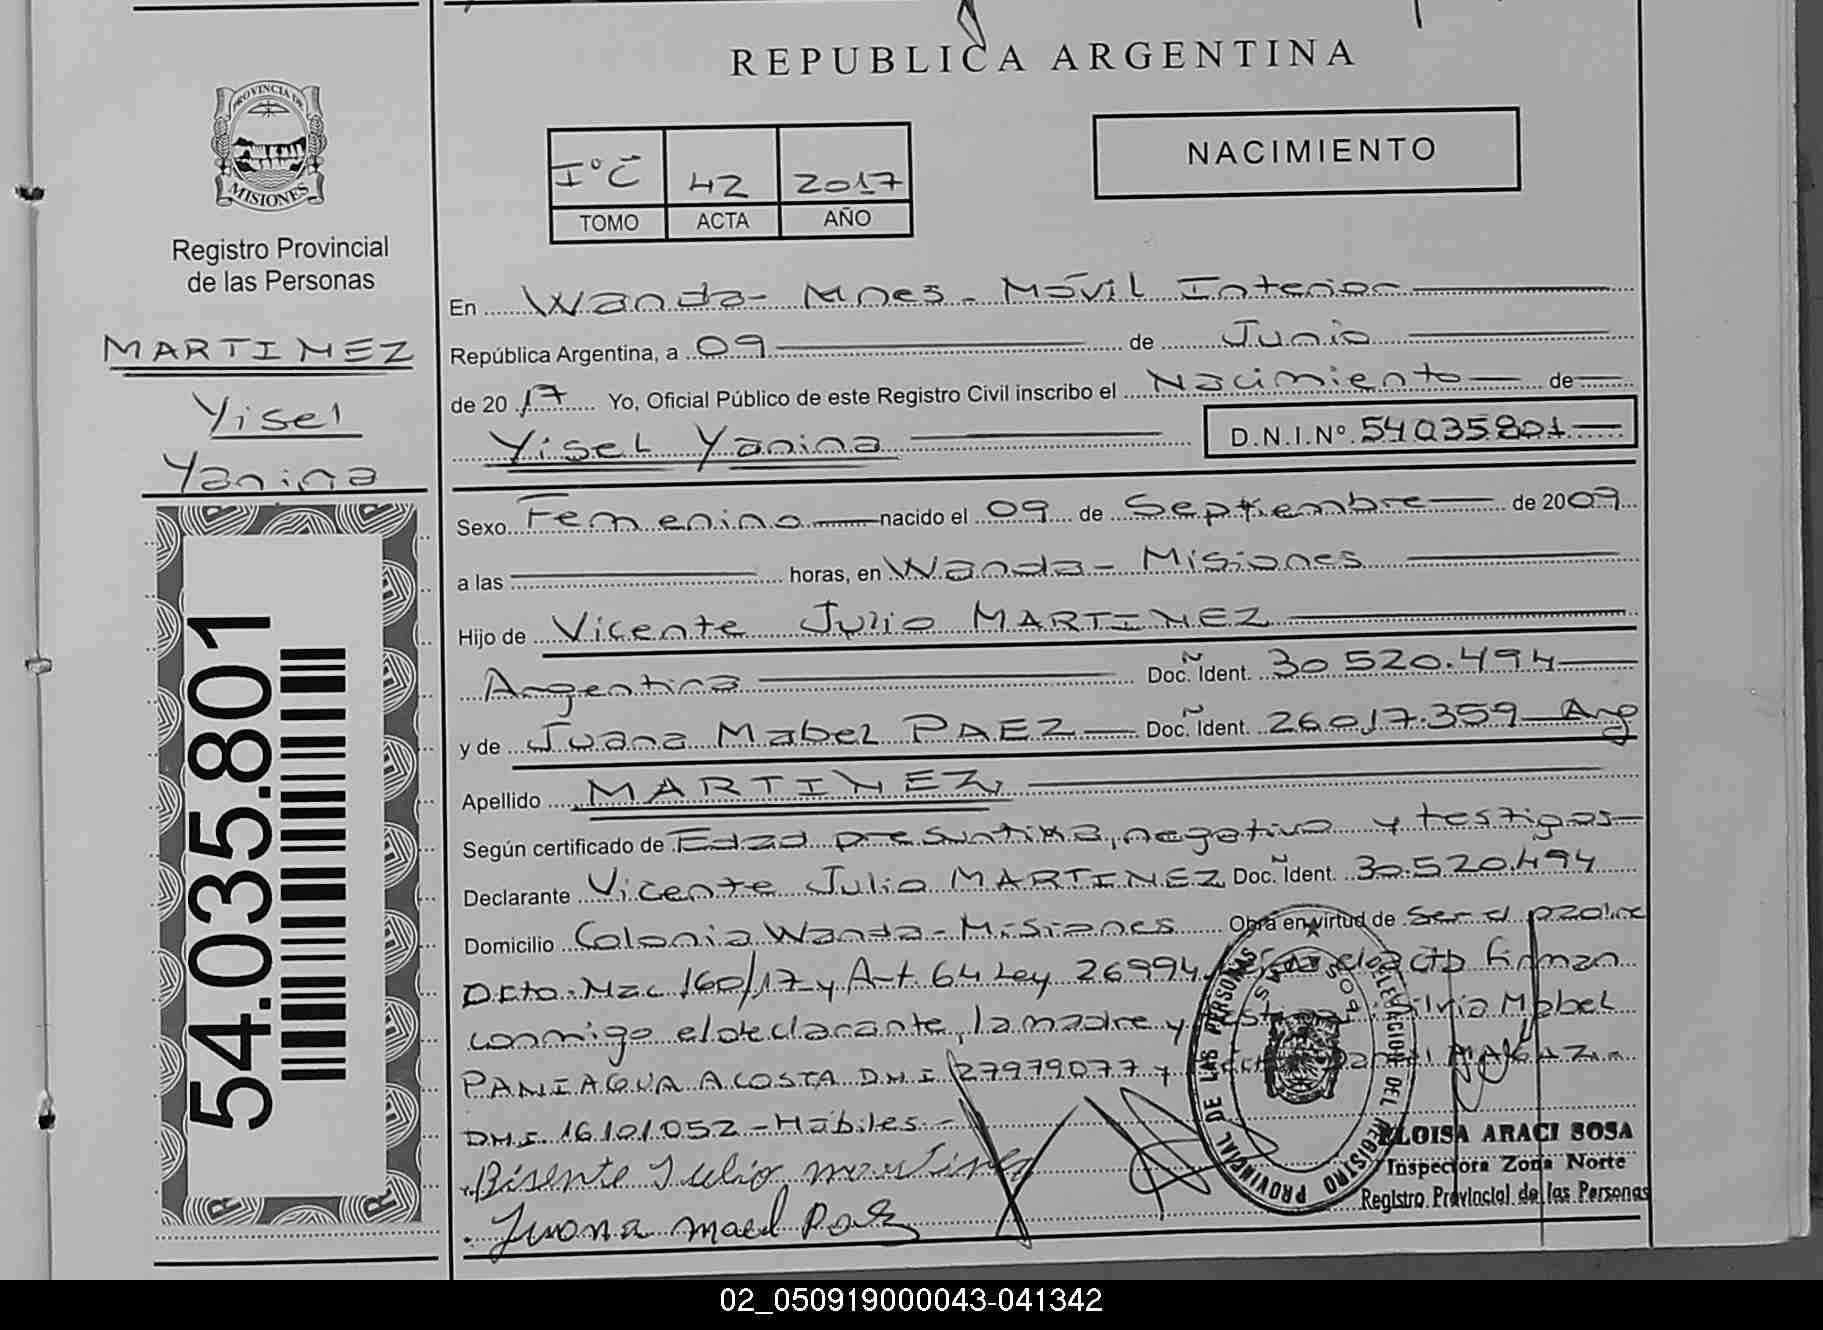 REPUBLICA ARGENTINA
PROVINCIA DE
MISIONES
Registro Provincial
de las Personas
MARTINEZ
Yisel
Yanina
54.035.801
I°C 42 2017
TOMO ACTA AÑO
NACIMIENTO
En Wanda - Mnes. Móvil Interior
República Argentina, a 09 de Junio
de 2017 Yo, Oficial Público de este Registro Civil inscribo el Nacimiento de
Yisel Yanina D.N.I.Nº. 54035801
Sexo Femenino nacido el 09 de Septiembre de 2009
a las horas, en Wanda - Misiones
Hijo de Vicente Julio MARTINEZ
Argentina Doc. Ident. 30.520.494
y de Juana Mabel PAEZ Doc. Ident. 26.017.359 Arg
Apellido MARTINEZ
Según certificado de Edad presuntiva, negativo y testigos
Declarante Vicente Julio MARTINEZ Doc. Ident. 30.520.494
Domicilio Colonia Wanda - Misiones Obra en virtud de Ser el padre
Dcto. Nac 160/17 y Art. 64 Ley 26994. acto firman
conmigo el declarante, la madre y Silvia Mabel
PANIAGUA ACOSTA D.N.I. 27979077 y
D.N.I. 16.101.052 - Hábiles -
Bisente Julio martines
Juona mael Paez
DELEGACION DEL REGISTRO PROVINCIAL DE LAS PERSONAS
ELOISA ARACI SOSA
Inspectora Zona Norte
Registro Provincial de las Personas
02_050919000043-041342